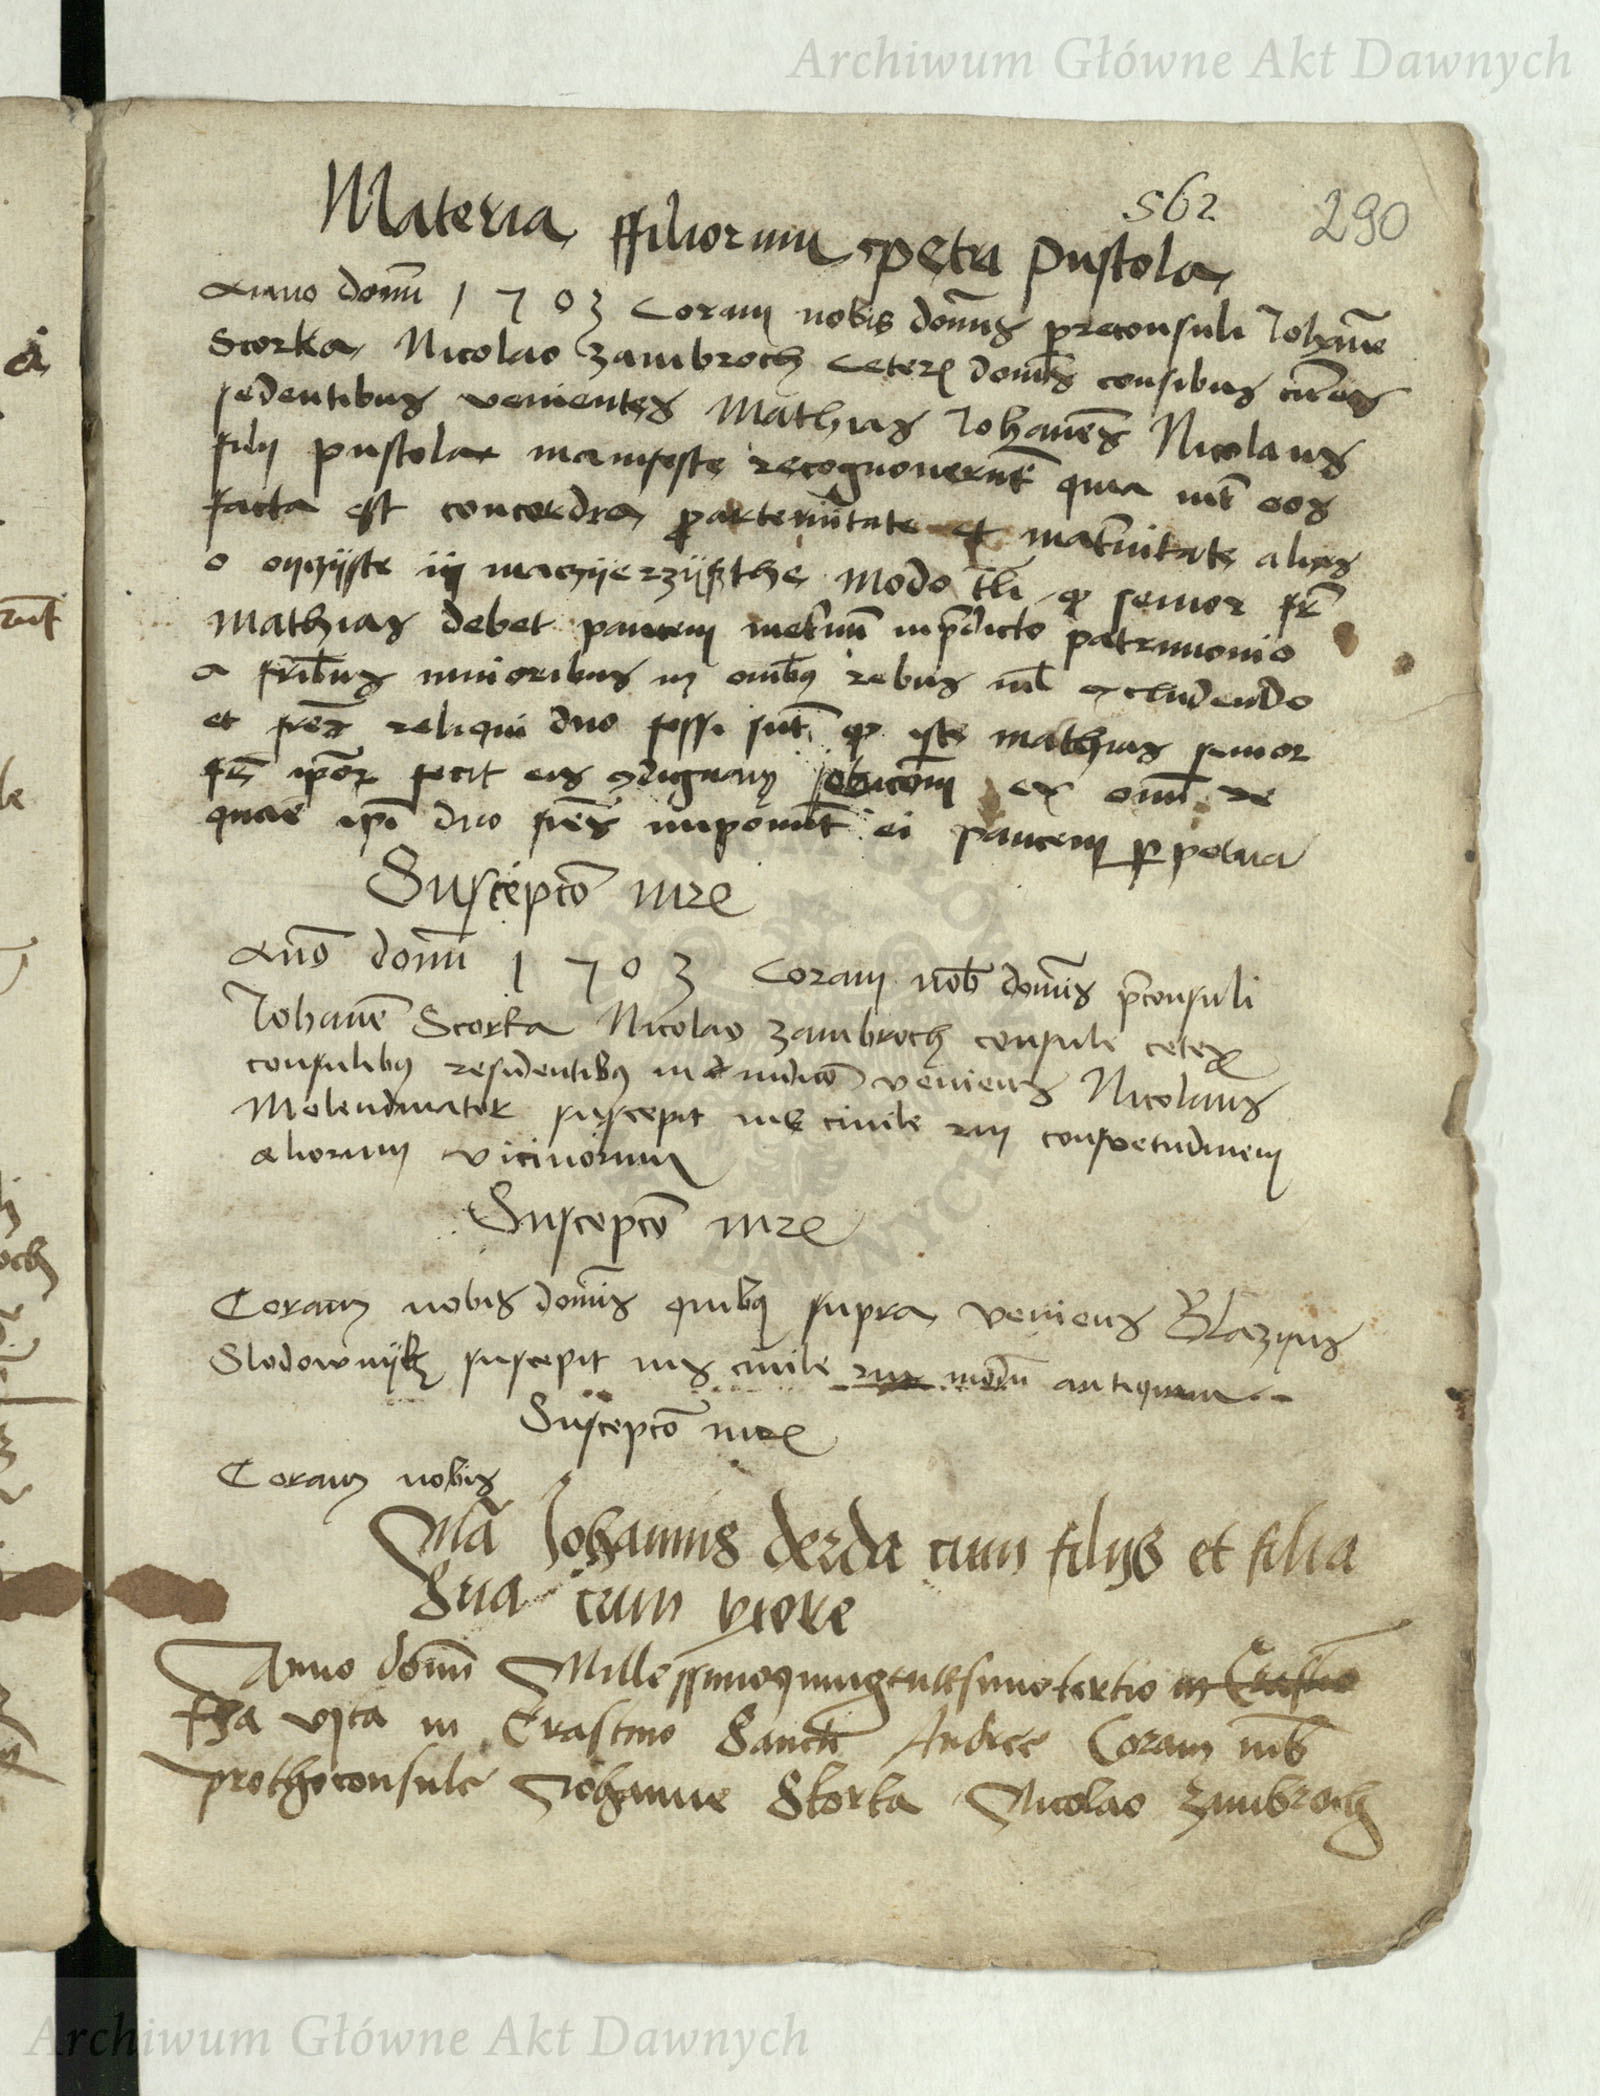 Archiwum Główne Akt Dawnych
562 290
Materia ffiliorum petri pustola
Anno domi 1503 Coram nobis dominis preconsuli Johanne
Skorka Nicolao Zambroch ceteris dominis
sedentibus venientes Mathias Johannes Nicolaus
filii pustolae manifeste recognoverunt quia inter eos
facta est concordia pro paternitate et maternitate alias
o oyczyste y maczyerzysthe modo tali quod senior frater
Mathias debet patrimonio
a fratribus minoribus in omnibus rebus nil excludendo
et fratres reliqui duo fossi sunt quod iste mathias senior
frater ipsorum fecit eis condignam solucionem ex omni re
ipsi duo fratres imponunt ei perpetua
Suscepcio iuris
Anno domi 1503 Coram nobis dominis preconsuli
Johanne Skorka Nicolao Zambroch consule ceteris
consulibus residentibus in veniens Nicolaus
Molendinator suscepit ius civile consvetudinem
aliorum vicinorum
Suscepcio iuris
Coram nobis dominis quibus supra veniens Blazyus
Slodownyk suscepit ius civile modum antiquum
Suscepcio iuris
Coram nobis
Materia Johannis derda cum filiis et filia
Sua cum uxore
Anno domi Millessimoquingentesimotertio
feria in Crastino Sancti Andree Coram nobis
prothoconsule Johanne Skorka Nicolao Zambroch
Archiwum Główne Akt Dawnych